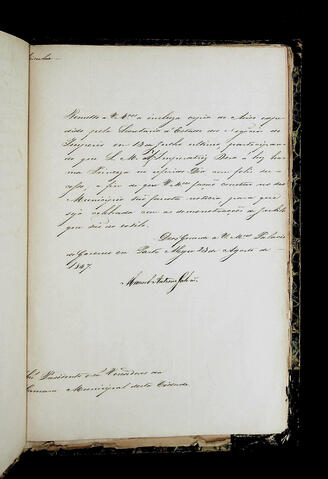 Circular
Remetto a V. Mces a incluza copia do Aviso expe-
dido pela Secretaria d'Estado dos Negocios do
Imperio em 13 de Julho ultimo, participando
que S. M. a Imperatriz Dera á luz hu-
ma Princeza no referido Dia com feliz suc-
cesso, a fim de que V. Mces fação constar no seu
Municipio tão fausta noticia para que
seja celebrada com as demonstrações de jubilo
que são do estilo.
Deos Guarde a V. Mces Palacio
do Governo em Porto Alegre 23 de Agosto de
1847.
Manoel Antonio Galvão
Presidente e Vereadores da
Camara Municipal desta Cidade.